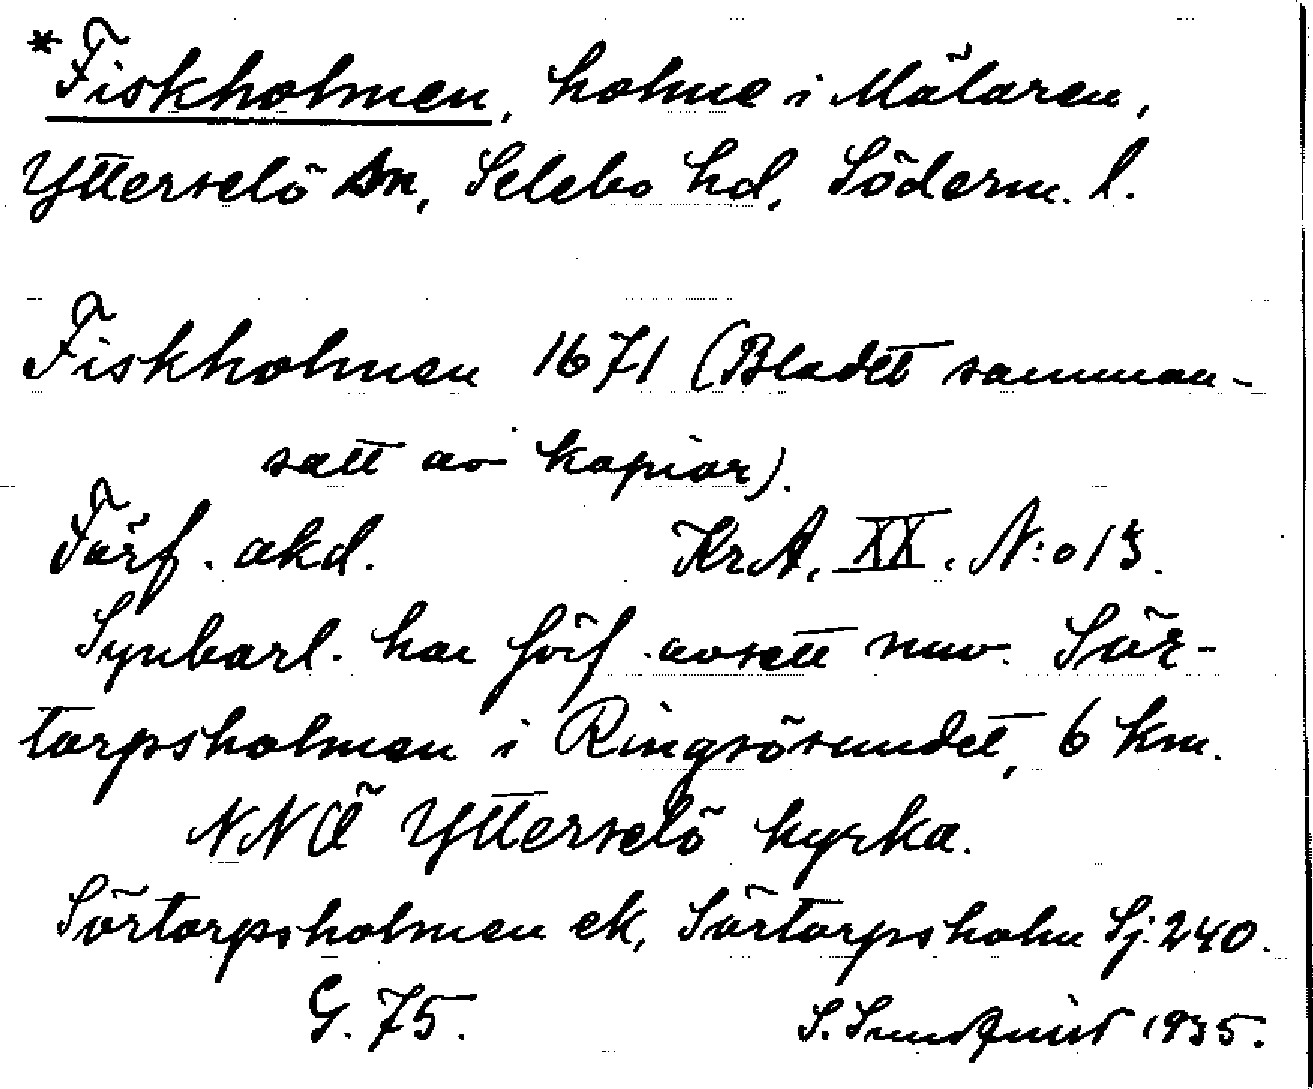 *Fiskholmen, holme i Mälaren,
Ytterselö sn, Selebo hd, Söderm. l.
Fiskholmen 1671 (Bladet samman-
satt av kopior).
Förf. okd. KrA. XX. N:o 13.
Synbarl. har förf. avsett nuv. Sör-
torpsholmen i Ringsösundet, 6 km.
NNÖ Ytterselö kyrka.
Sörtorpsholmen ek, Sörtorpsholm Sj. 240.
G. 75. S. Sundquist 1935.